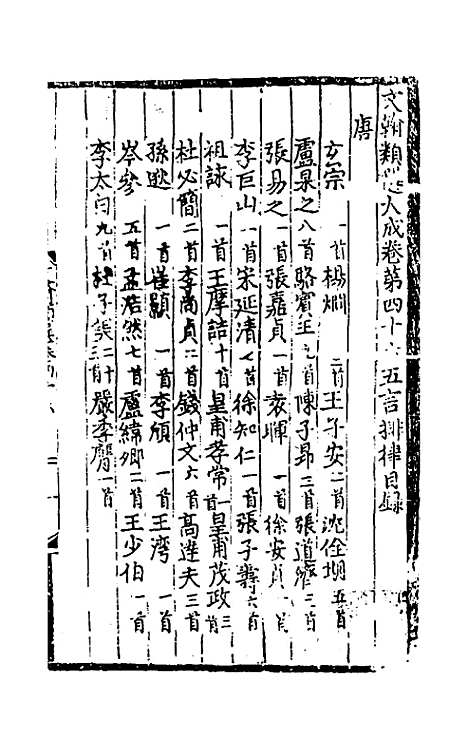 文翰類選大成卷第四十六 五言排律目錄
唐
玄宗 一首 楊烱 二首 王子安 二首 沈佺期 五首
盧杲之 八首 駱賓王 九首 陳子昂 三首 張道濟 三首
張易之 一首 張嘉貞 一首 袁暉 一首 徐安貞 一首
李巨山 一首 宋延清 七首 徐知仁 一首 張子壽 六首
祖詠 一首 王摩詰 十首 皇甫孝常 一首 皇甫茂政 三首
杜必簡 二首 李尚貞 二首 錢仲文 六首 高達夫 三首
孫逖 一首 崔顥 一首 李頎 一首 王灣 一首
岑參 五首 孟浩然 七首 盧緯卿 二首 王少伯 一首
李太白 九首 杜子美 二十三首 嚴季膺 一首